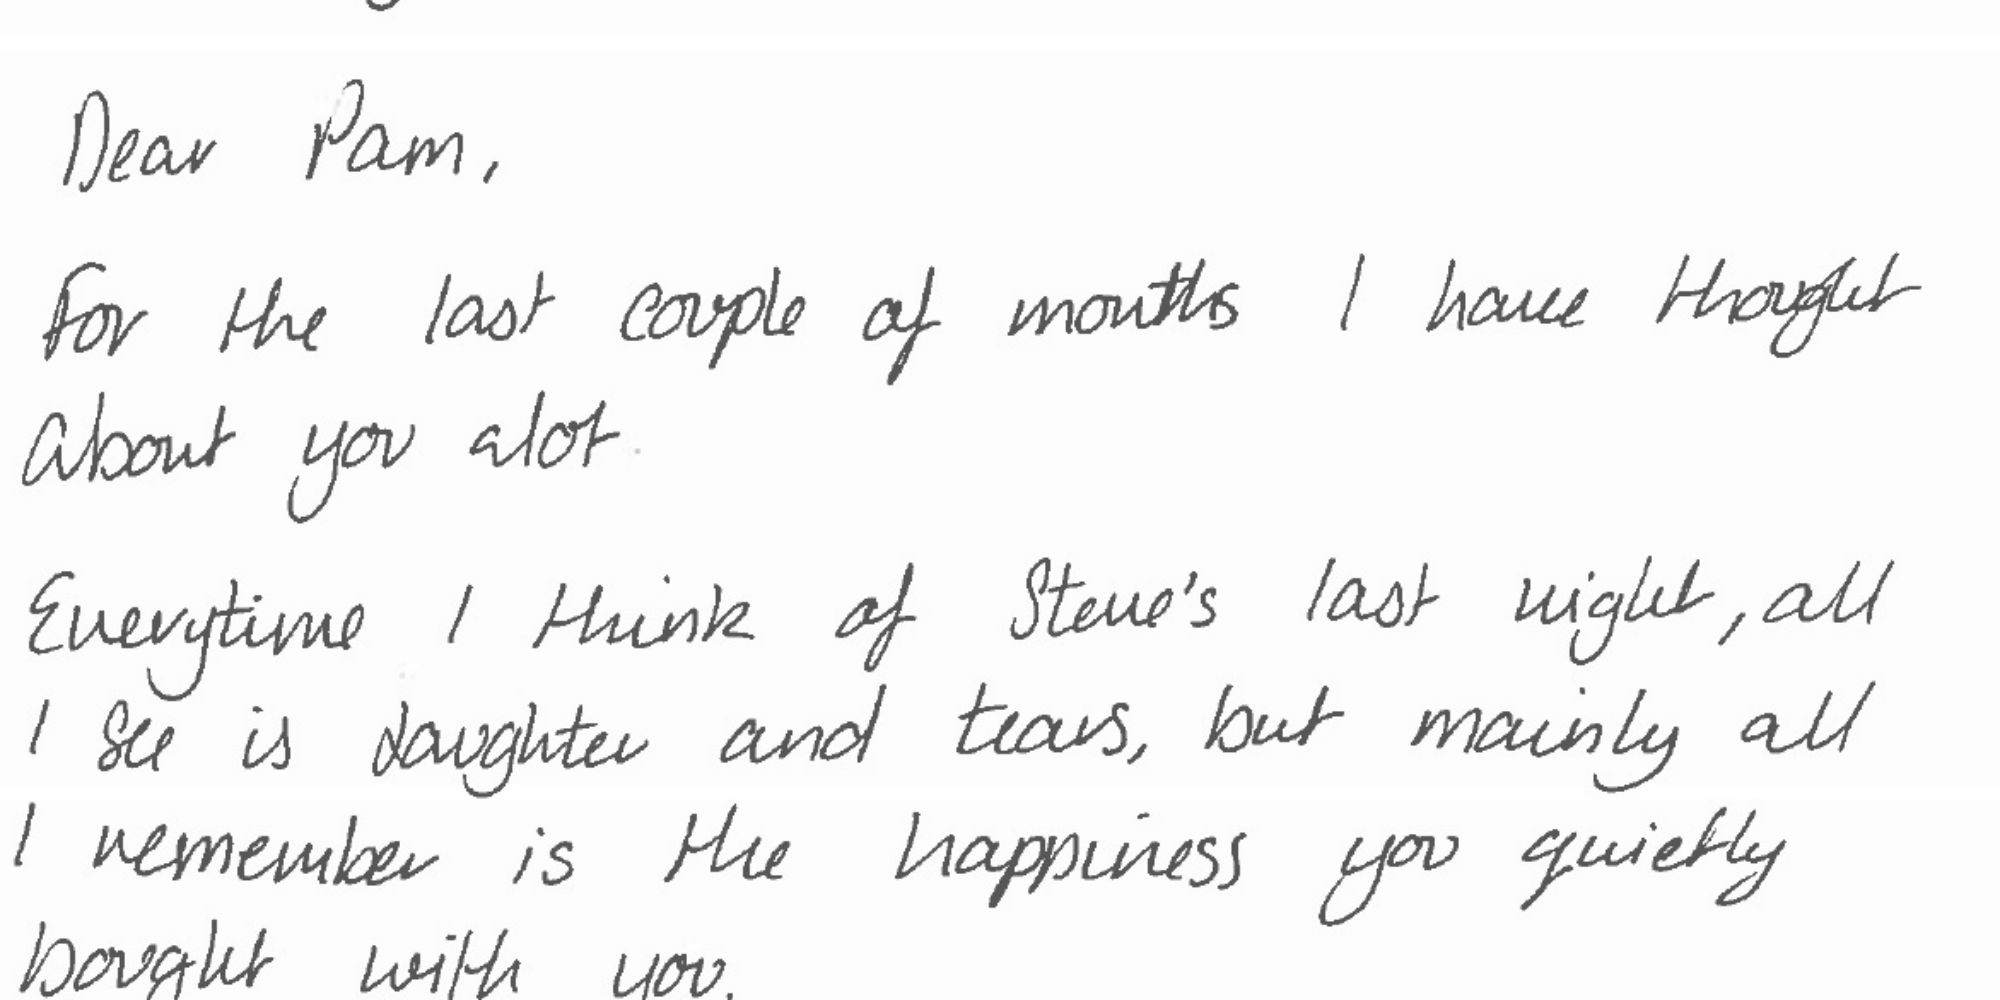 Dear Pam,
For the last couple of months I have thought
about you alot.
Everytime I think of Steve's last night, all
I see is laughter and tears, but mainly all
I remember is the happiness you quietly
bought with you.